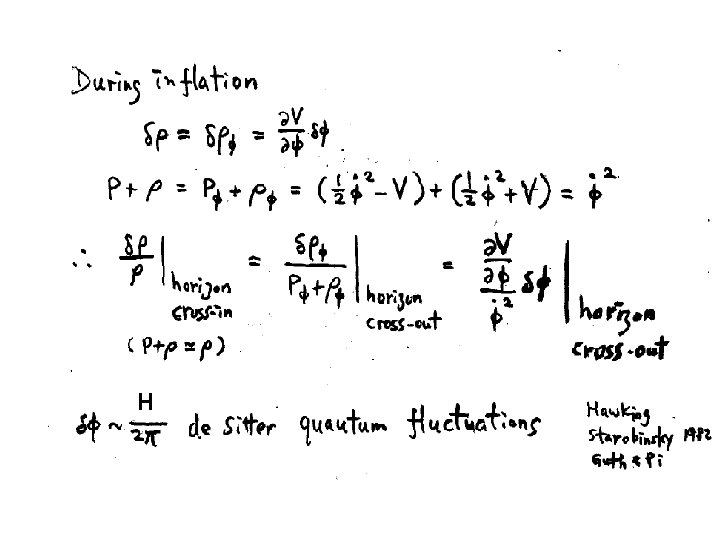 During inflation
δρ = δρ_ϕ = ∂V/∂ϕ δϕ
P + ρ = P_ϕ + ρ_ϕ = (½ϕ̇² − V) + (½ϕ̇² + V) = ϕ̇²
∴ δρ/ρ |horizon cross-in = δρ_ϕ/(P_ϕ + ρ_ϕ) |horizon cross-out = (∂V/∂ϕ)/ϕ̇² δϕ |horizon cross-out
(P + ρ ≃ ρ)
δϕ ~ H/2π de Sitter quantum fluctuations
Hawking
Starobinsky 1982
Guth & Pi